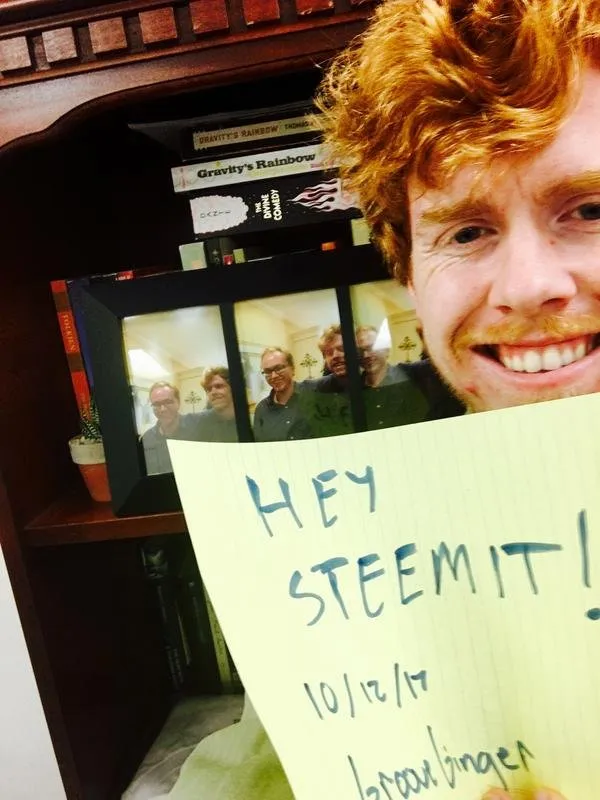 GRAVITY'S RAINBOW THOMAS
Gravity's Rainbow
DANTE THE DIVINE COMEDY
TOLKIEN
HEY
STEEMIT!
10/12/17